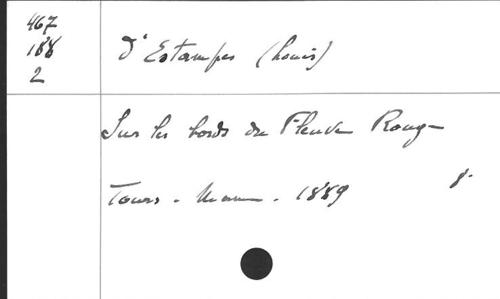 467
188
2
D'Estampes (Louis)
Sur les bords du Fleuve Rouge
Tours - Mame - 1889 8°